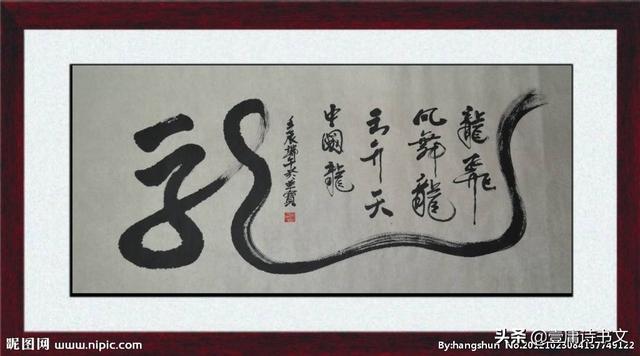 龍飛
凤舞龍
升天
中國龍
壬辰端午於
龍
昵图网 www.nipic.com
By:hangshun No.20121023084137749122
头条 @壹庸诗书文